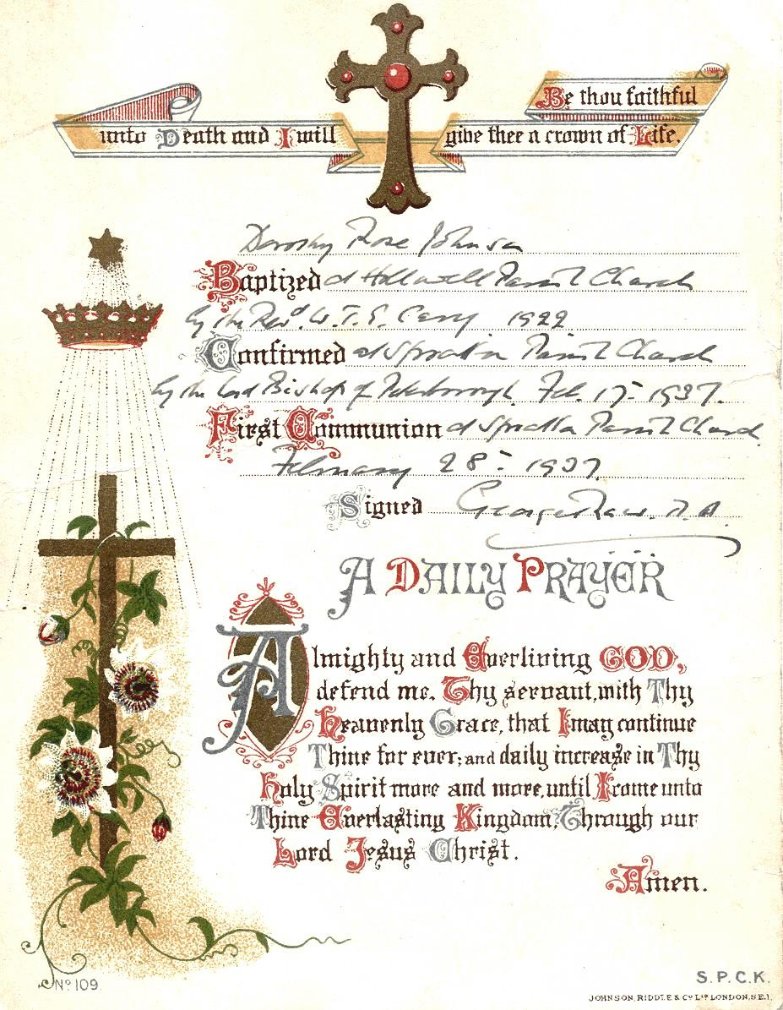 Be thou faithful
unto Death and I will give thee a crown of Life.
Dorothy Rose Johnson
Baptized at Hollowell Parish Church
by the Revd. W. T. E. 1922
Confirmed at Spratton Parish Church
by the Lord Bishop of Peterborough Feb. 17th 1937.
First Communion at Spratton Parish Church
February 28th 1937.
Signed George Raw. M.A.
A DAILY PRAYER
Almighty and Everliving GOD,
defend me, Thy servant, with Thy
Heavenly Grace, that I may continue
Thine for ever; and daily increase in Thy
Holy Spirit more and more, until I come unto
Thine Everlasting Kingdom. Through our
Lord Jesus Christ.
Amen.
No 109
S.P.C.K.
JOHNSON, RIDDLE & Co Ltd LONDON, S.E.1.